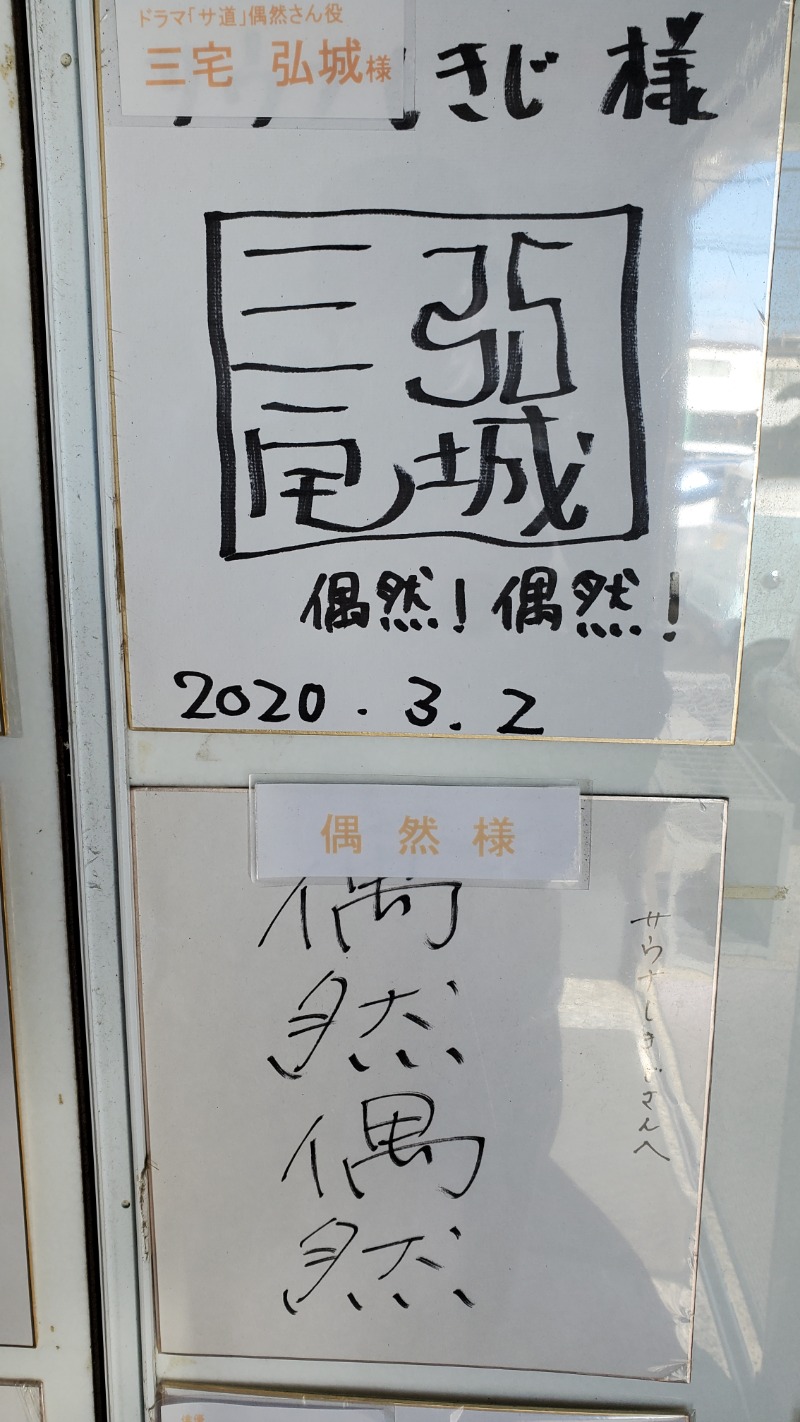 ドラマ「サ道」偶然さん役
三宅 弘城様
きじ 様
三宅 弘城
偶然!偶然!
2020.3.2
偶然様
偶
然
偶
然
サウナしきじさんへ